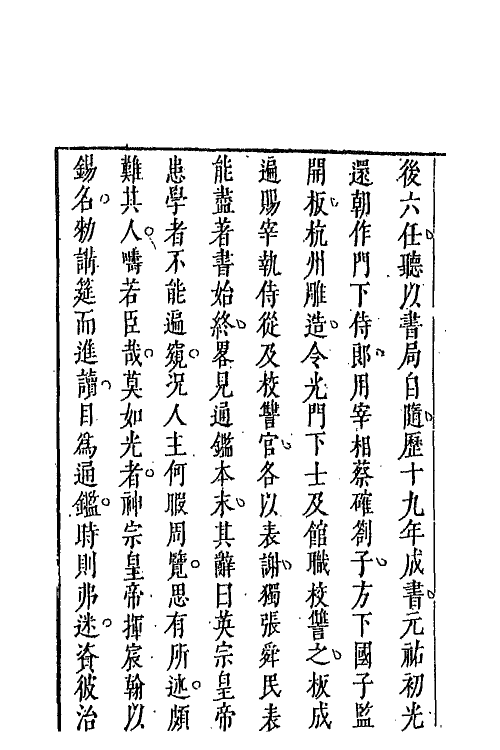 後六任聽以書局自隨歷十九年成書元祐初光
還朝作門下侍郎用宰相蔡確劄子方下國子監
開板杭州雕造令光門下士及館職校讐之板成
遍賜宰執侍從及校讐官各以表謝獨張舜民表
能盡著書始終畧見通鑑本末其辭曰英宗皇帝
患學者不能遍窺況人主何暇周覽思有所述頗
難其人疇若臣哉莫如光者神宗皇帝揮宸翰以
錫名勑講筵而進讀目為通鑑時則弗迷資彼治